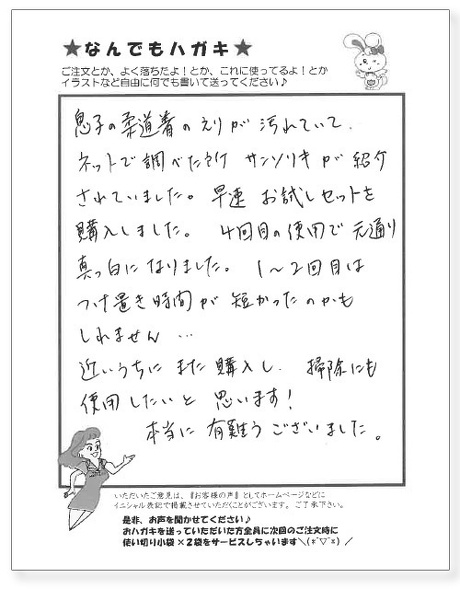 ★なんでもハガキ★
ご注文とか、よく落ちたよ！とか、これに使ってるよ！とか
イラストなど自由に何でも書いて送ってください♪
息子の柔道着のえりが汚れていて、
ネットで調べた所 サンソリキが紹介
されていました。早速 お試しセットを
購入しました。 4回目の使用で元通り
真っ白になりました。 1〜2回目は
つけ置き時間が 短かったのかも
しれません …
近いうちに また購入し、 掃除にも
使用したいと 思います！
本当に 有難うございました。
いただいたご意見は、『お客様の声』としてホームページなどに
イニシャル表記で掲載させていただくことがございます。ご了承下さい。
是非、お声を聞かせてください♪
おハガキを送っていただいた方全員に次回のご注文時に
使い切り小袋×2袋をサービスしちゃいます＼(*ˊ▽ˋ*)／